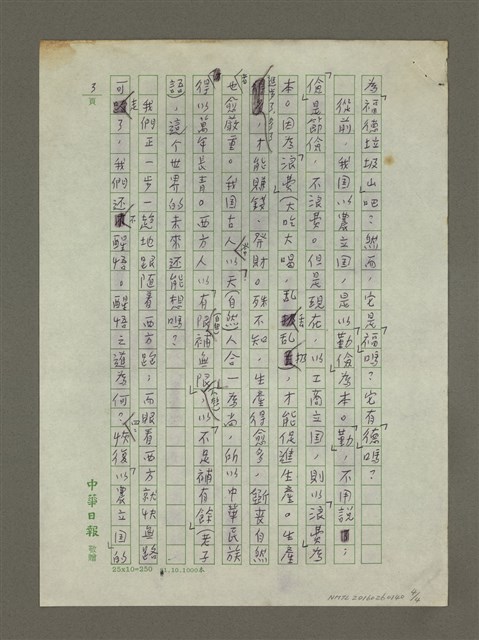 為福德垃圾山吧？然而，它是「福」嗎？它有「德」嗎？
從前，我國以農立國，是以「勤儉」為本。「勤」，不用說；
「儉」是節儉，不浪費。但是現在，以工商立國，則以「浪費」為
本。因為「浪費」（大吃大喝，亂丟亂扔），才能促進生產。生產
進步了，多了，才能賺錢、發財。殊不知，生產得愈多，斷喪自然
也愈嚴重。我國古人，以「天（自然）人合一」為尚，所以中華民族
得以萬年長青。西方人以「有限（自然）補無限（慾）」，以「不是補有餘（老子
語）」，這個世界的未來還能想嗎？
我們正一步一趨地跟隨着西方跑；而眼看西方就快無路
可走了，我們還不醒悟。醒悟之道為何？恢復「以農立國」的
3
頁
中華日報
敬贈
25x10=250 81.10.1000本
NMTL 20160260240
4/4